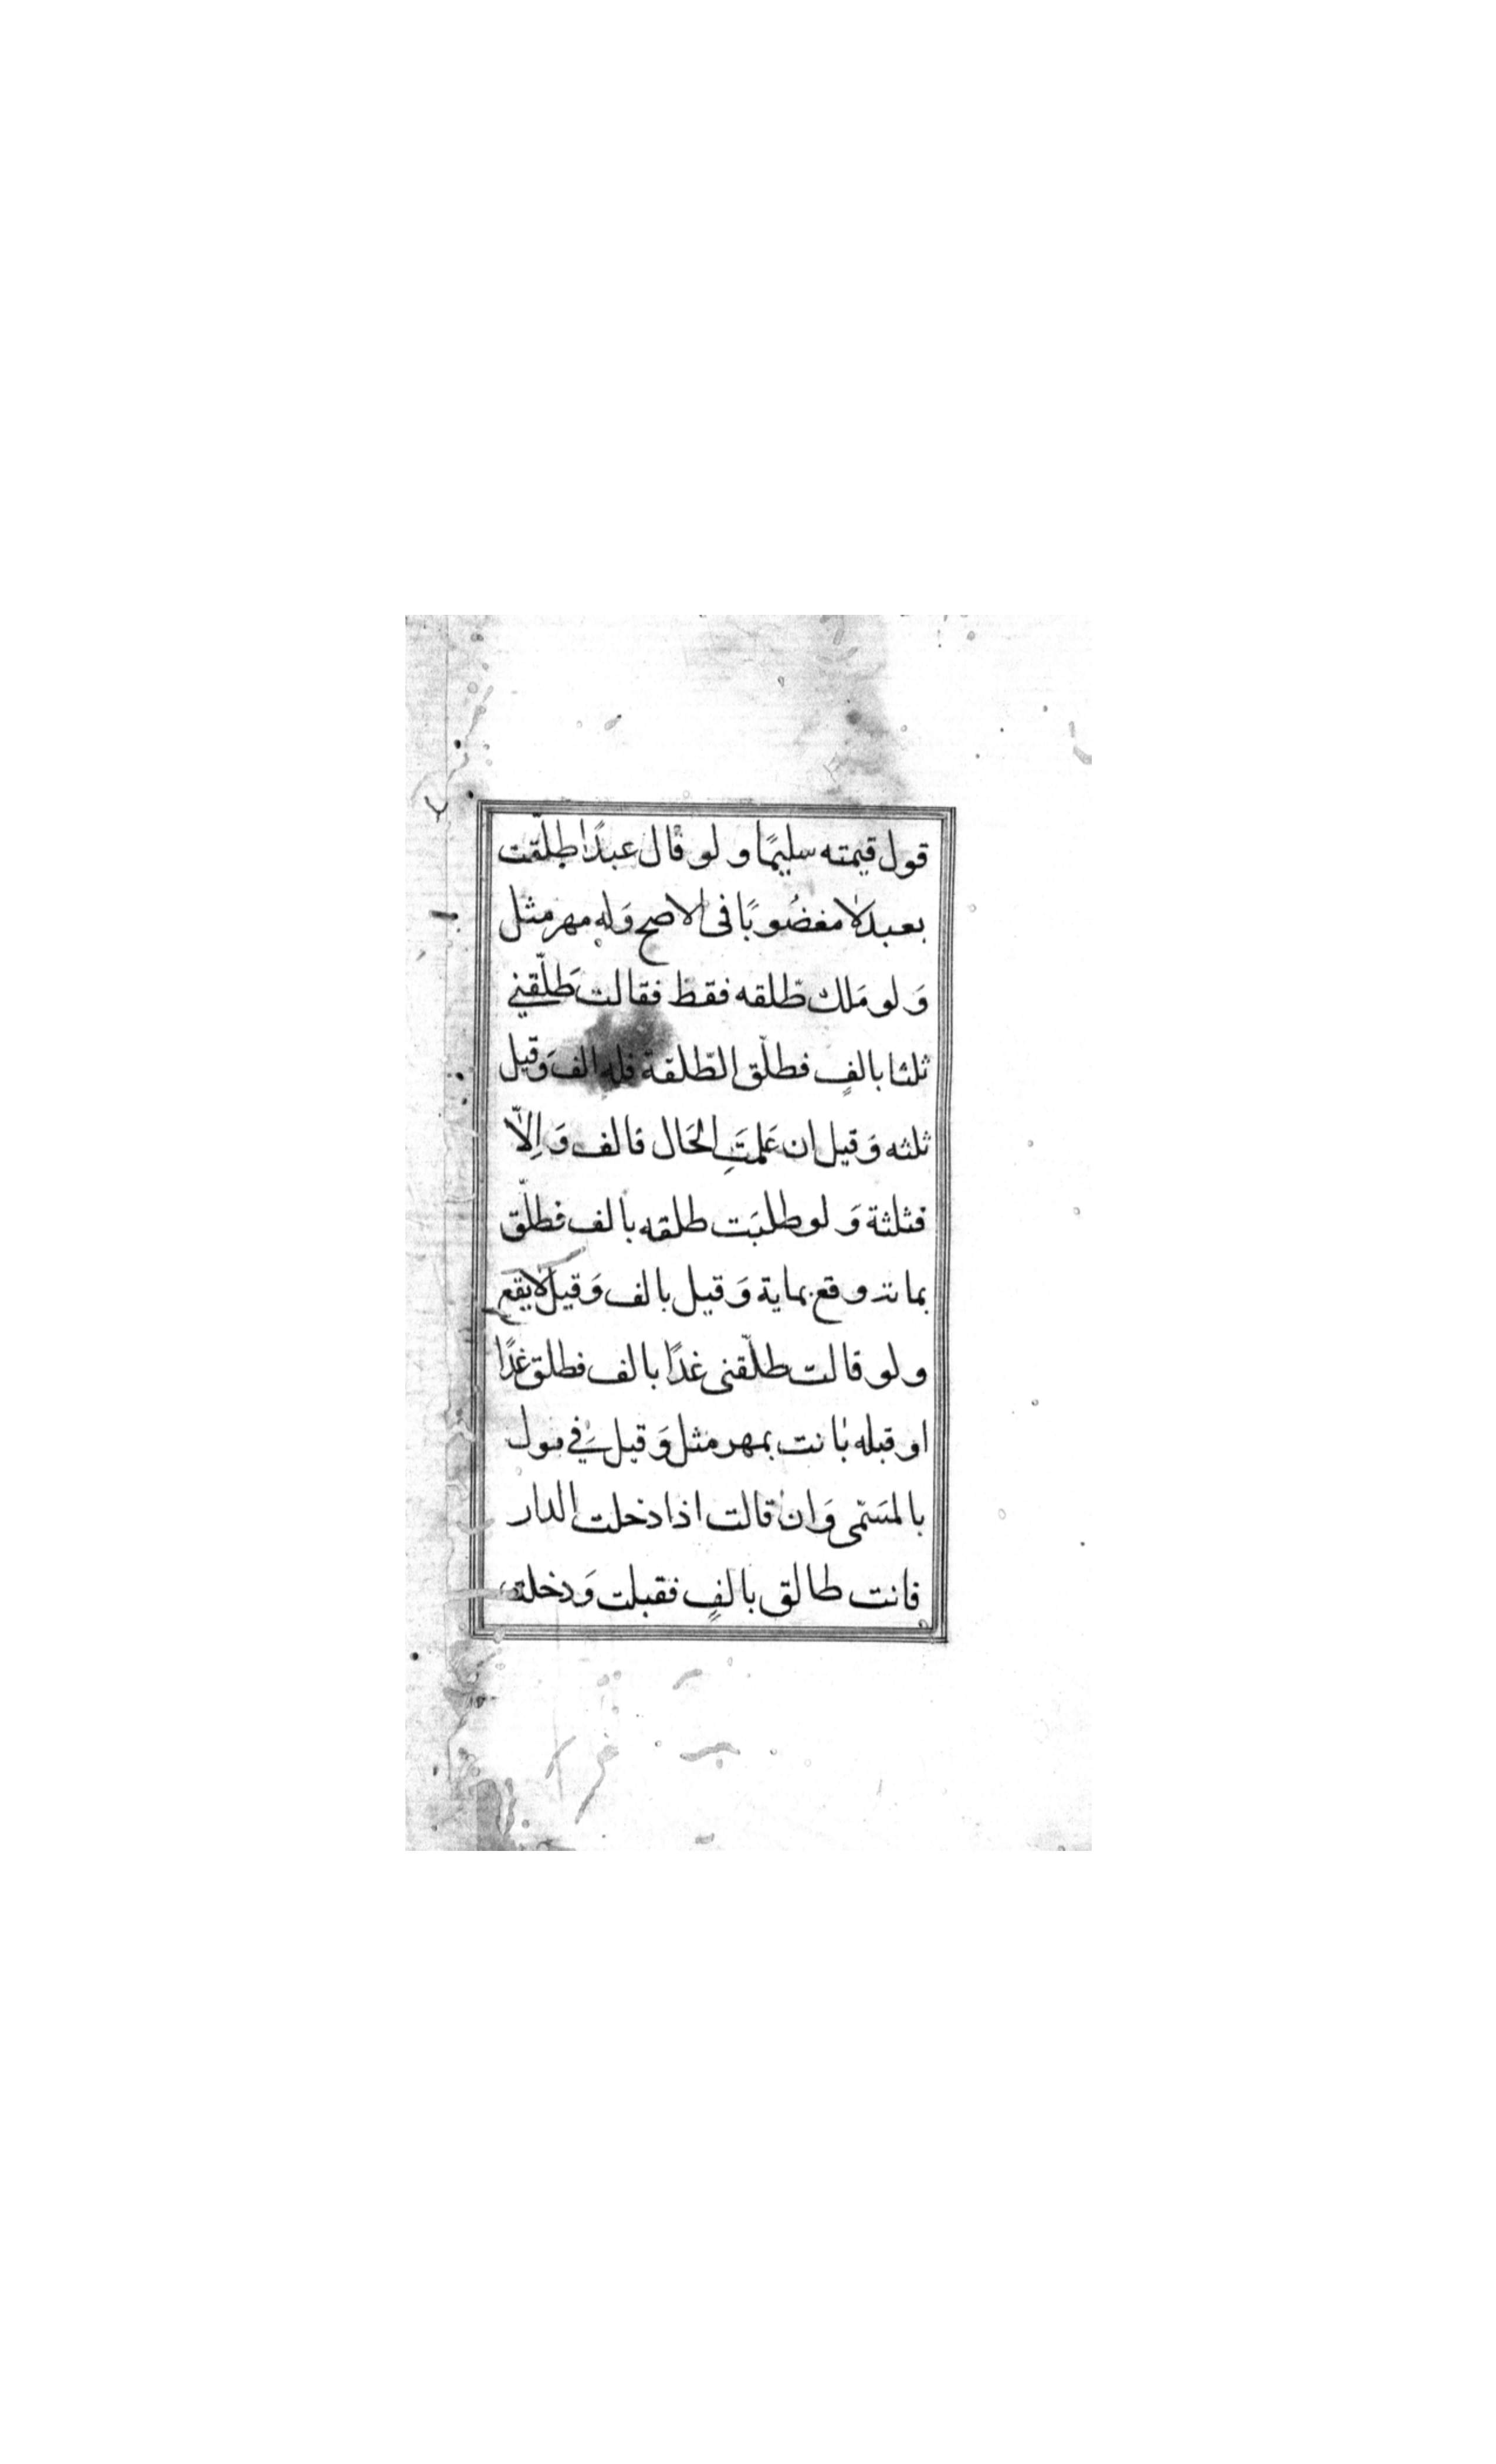 قول قيمته سليمًا و لو قال عبدًا طلقت
بعبد لا مغصُوبًا فى الاصح وَله مهر مثل
وَ لو مَلك طلقه فقط فقالت طَلّقني
ثلثا بالفٍ فطلّق الطّلقة فله الف وَقيل
ثلثه وَقيل ان عَلمَتِ الحَال فالف وَ اِلاّ
فثلثة وَ لو طلبَت طلقه بالف فطلّق
بمائة وقع بماية وَقيل بالف وَقيل لا يقع
و لو قالت طلّقنى غدًا بالف فطلق غدًا
او قبله بانت بمهر مثل وَقيل في قول
بالمسَمّى وَان قالت اذا دخلت الدار
فانت طالق بالفٍ فقبلت وَدخلت